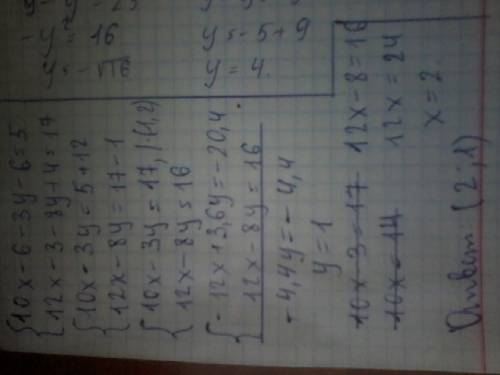 16
y = -5 + 9
y = 4.
{ 10x - 6 - 3y - 6 = 5
12x - 3 - 8y + 4 = 17
{ 10x - 3y = 5 + 12
12x - 8y = 17 - 1
{ 10x - 3y = 17, | · (-1,2)
12x - 8y = 16
{ -12x + 3,6y = -20,4
12x - 8y = 16
-4,4y = -4,4
y = 1
10x - 3 = 17
10x = 14
12x - 8 = 16
12x = 24
x = 2.
Ответ: (2; 1)